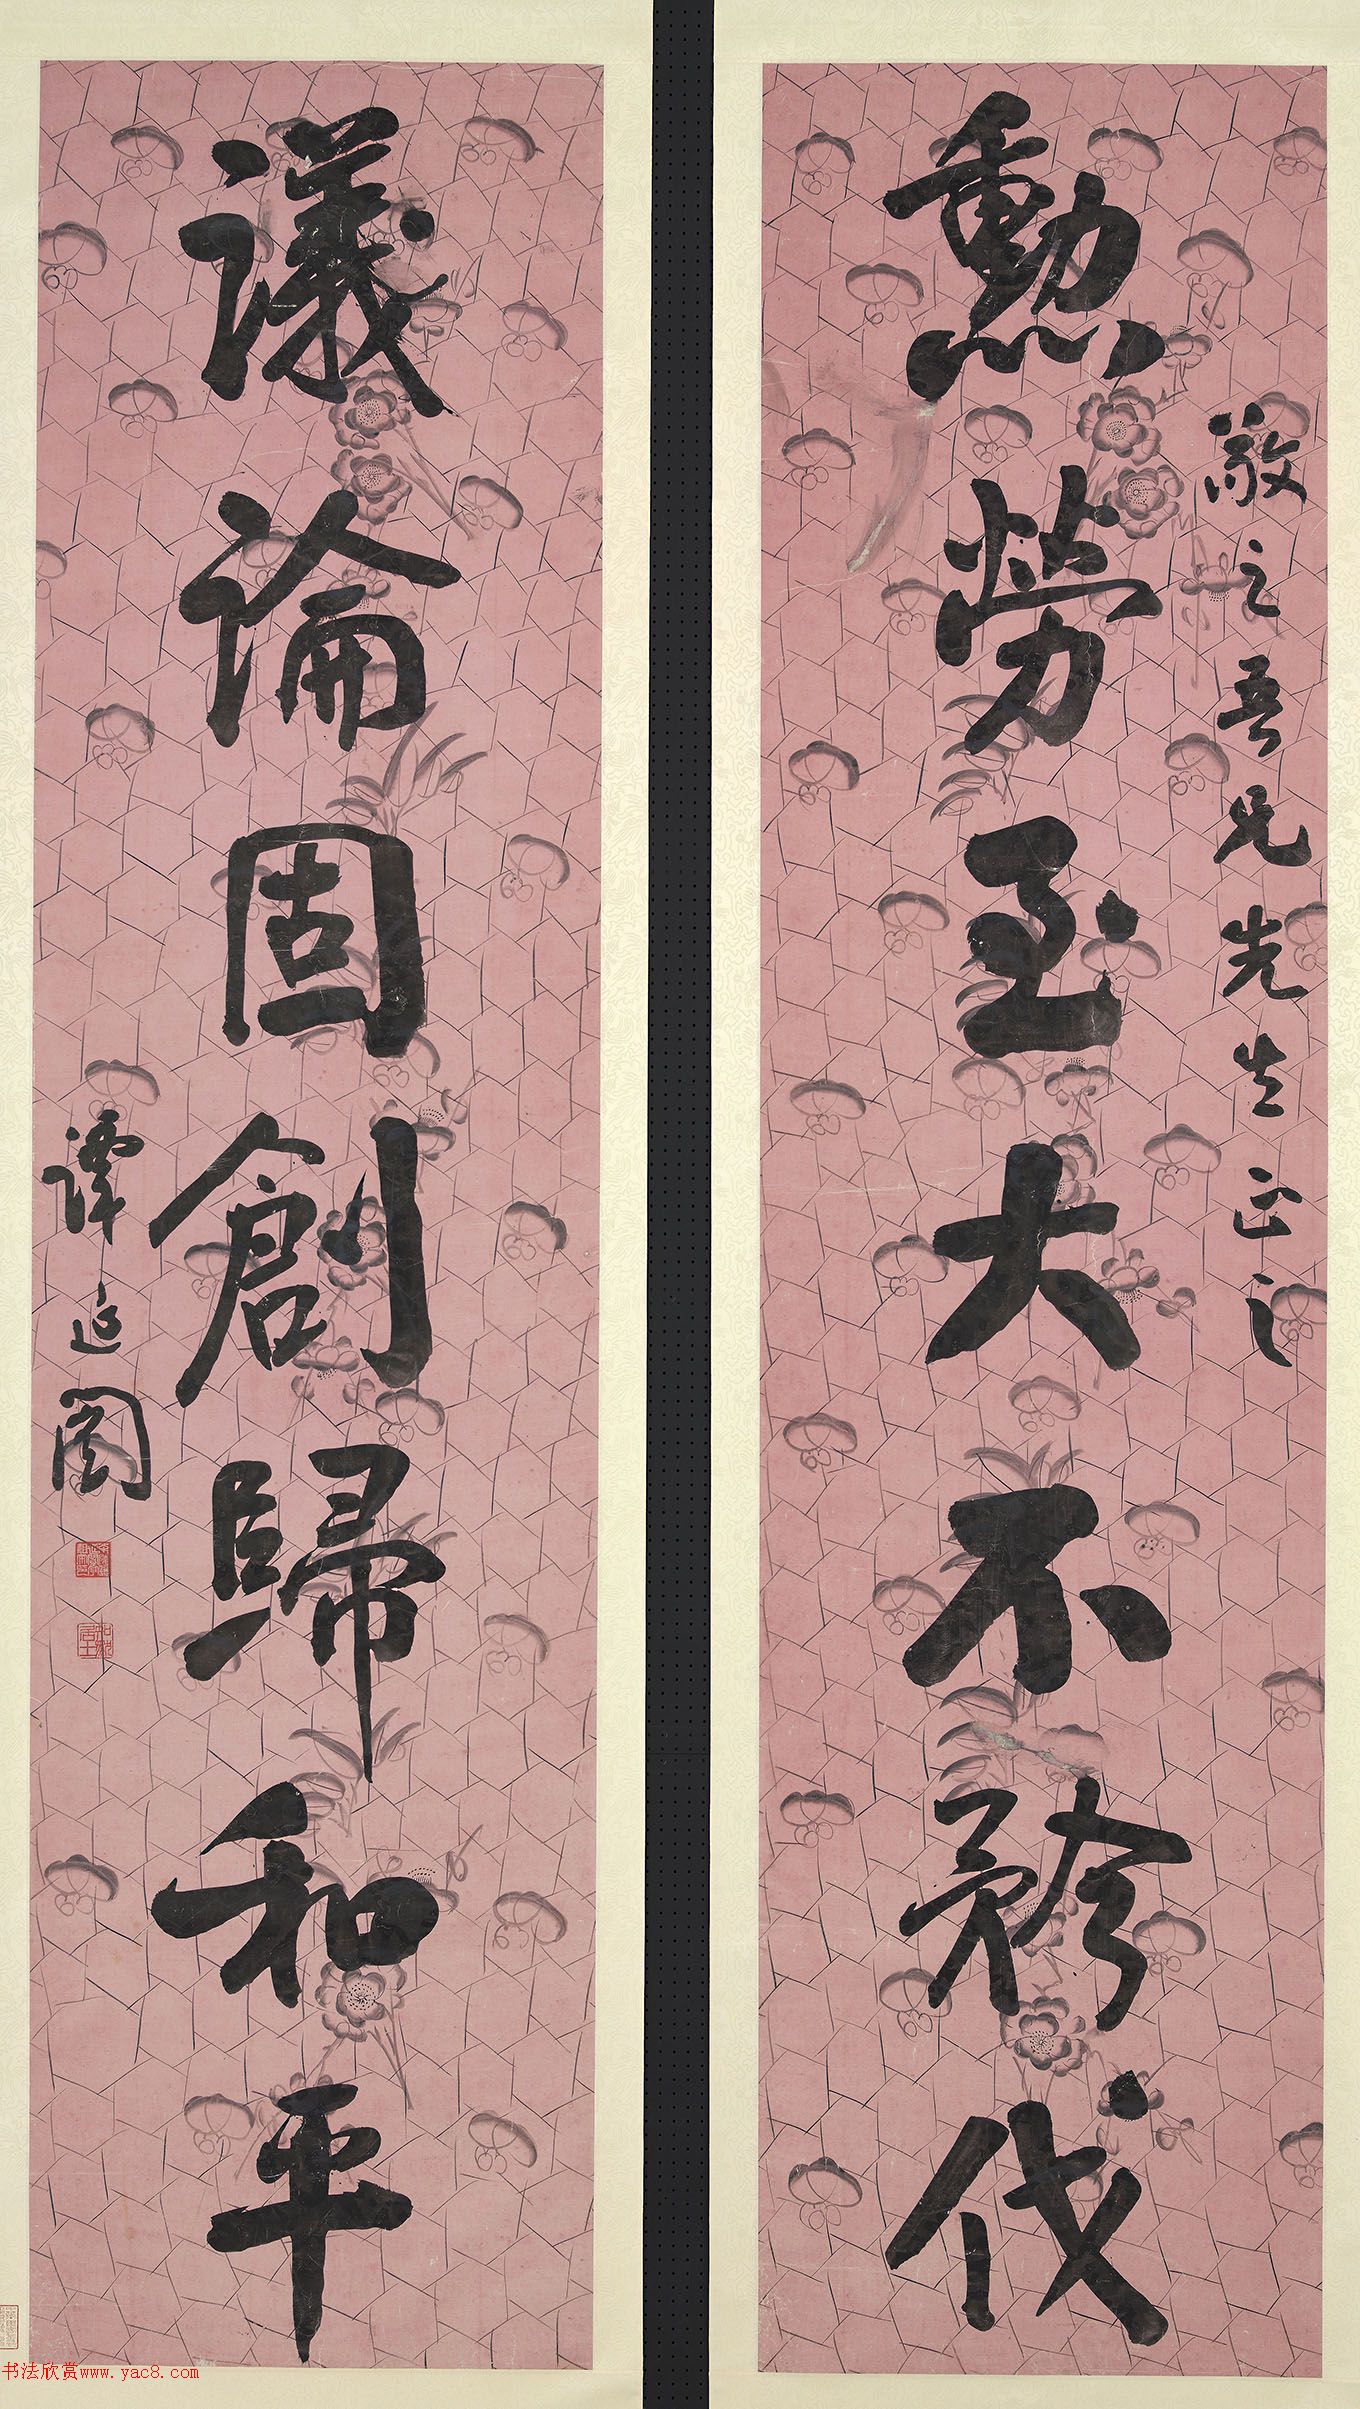 敬之吾兄先生正之
勲勞至大不矜伐
議論固創歸和平
譚延闓
书法欣赏www.yac8.com